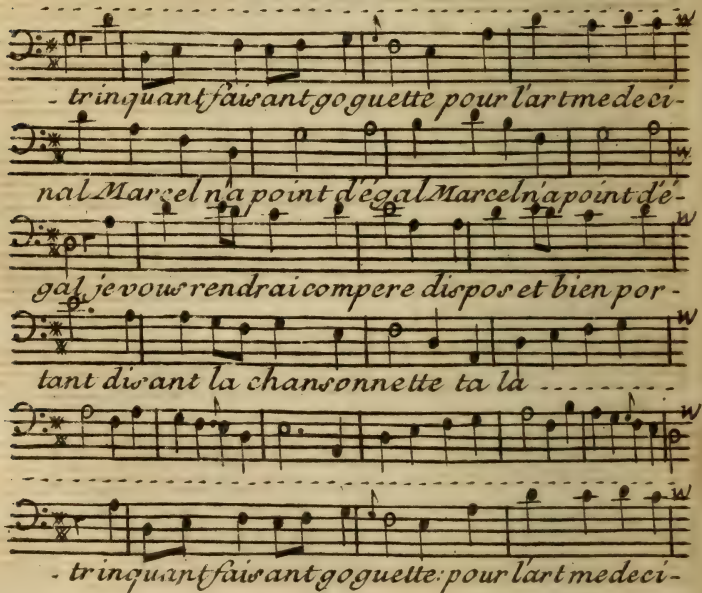 - trinquant faisant goguette pour l'art medeci-
nal Marcel n'a point d'égal Marcel n'a point d'é-
gal je vous rendrai compere dispos et bien por-
tant disant la chansonnette ta la
- trinquant faisant goguette: pour l'art medeci-